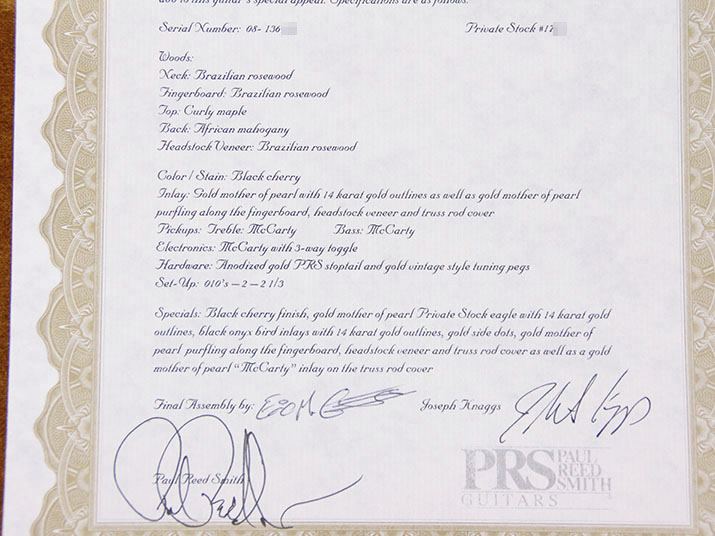 add to this guitar's special appeal. Specifications are as follows:
Serial Number: 08- 136 Private Stock #17
Woods:
Neck: Brazilian rosewood
Fingerboard: Brazilian rosewood
Top: Curly maple
Back: African mahogany
Headstock Veneer: Brazilian rosewood
Color / Stain: Black cherry
Inlay: Gold mother of pearl with 14 karat gold outlines as well as gold mother of pearl
purfling along the fingerboard, headstock veneer and truss rod cover
Pickups: Treble: McCarty Bass: McCarty
Electronics: McCarty with 3-way toggle
Hardware: Anodized gold PRS stoptail and gold vintage style tuning pegs
Set-Up: 010's – 2 – 2 1/3
Specials: Black cherry finish, gold mother of pearl Private Stock eagle with 14 karat gold
outlines, black onyx bird inlays with 14 karat gold outlines, gold side dots, gold mother of
pearl purfling along the fingerboard, headstock veneer and truss rod cover as well as a gold
mother of pearl "McCarty" inlay on the truss rod cover
Final Assembly by: Joseph Knaggs
Paul Reed Smith
PRS PAUL
REED
SMITH
GUITARS